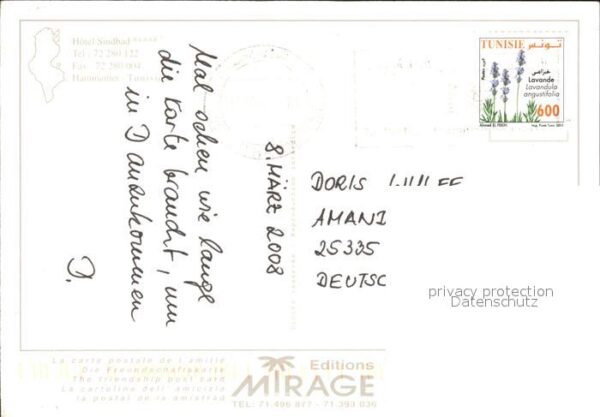 Hôtel Sindbad *****
Tel : 72 280 122
Fax : 72 280 004
Hammamet - Tunisie
TUNISIE تونس
خزامى
Lavande
Lavandula
angustifolia
600
Mal sehen wie lange
die Karte braucht, um
in D anzukommen
D.
8. MÄRZ 2008
DORIS
AMANI
25335
DEUTSC
privacy protection
Datenschutz
La carte postale de l'amitie
Die Freundschaftskarte
The friendship post card
La cartolina dell' amicizia
la postal de la amistad
Editions
MIRAGE
TEL: 71-496 877 - 71-393 036